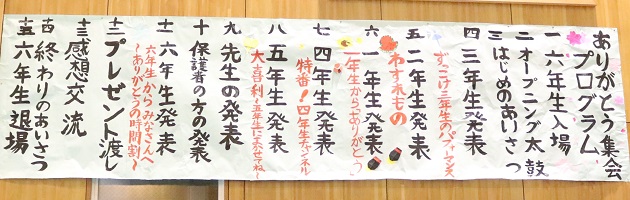 ありがとう集会
プログラム
一 六年生入場
二 オープニング太鼓
三 はじめのあいさつ
四 三年生発表
ずっこけ三年生のパフォーマンス
五 二年生発表
わすれもの
六 一年生発表
一年生から「ありがとう」
七 四年生発表
特番!四年生チャンネル
八 五年生発表
大喜利~五年生にまかせてね~
九 先生の発表
十 保護者の方の発表
十一 六年生発表
六年生からみなさんへ
~ありがとうの時間割~
十二 プレゼント渡し
十三 感想交流
十四 終わりのあいさつ
十五 六年生退場